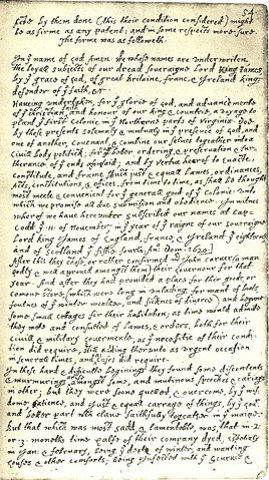 54
by them done (this their condition considered) might
be as firme as any patent; and in some respects more sure.
The forme was as followeth.
In ye name of god Amen. We whose names are underwriten,
the loyall subjects of our dread soveraigne Lord King James
by ye grace of God, of great Britaine, franc, & Ireland king,
defender of ye faith, &c
Haveing undertaken, for ye glorie of god, and advancemente
of ye christian faith and honour of our king & countrie, a voyage to
plant ye first colonie in ye Northerne parts of Virginia. Doe
by these presents solemnly & mutualy in ye presence of god, and
one of another, covenant & combine our selves togeather into a
civill body politick; for our better ordering, & preservation & fur-
therance of ye ends aforesaid; and by vertue hearof to enacte,
constitute, and frame such just & equall lawes, ordinances,
Acts, constitutions, & offices, from time to time, as shall be thought
most meete & convenient for ye generall good of ye Colonie: unto
which we promise all due submission and obedience. In witnes
wherof we have hereunder subscribed our names at Cap-
Codd ye .11. of November, in ye year of ye raigne of our soveraigne
Lord King James of England, France, & Ireland ye eighteenth
and of Scotland ye fiftie fourth. Ano: Dom. 1620.
After this they chose, or rather confirmed mr John Carver (a man
godly & well approved amongst them) their Governour for that
year. And after they had provided a place for their goods, or
comone store, (which were long in unlading, for want of boats,
foulnes of ye winter weather, and sicknes of diverce) and begune
some small cottages for their habitation; as time would admitte
they mette and consulted of lawes, & orders, both for their
civill & military Govermente, as ye necessitie of their condi-
tion did require, still adding therunto as urgent occasion
in severall times, and cases did require.
In these hard & difficulte beginings they found some discontents
& murmurings amongst some, and mutinous speeches & cariags
in other; but they were soone quelled, & overcome, by ye wis-
dome, patience, and just & equall carrage of things, by ye Govr
and better part wch clave faithfully togeather in ye maine.
But that which was most sadd, & lamentable, was, that in .2.
or .3. moneths time halfe of their company dyed, espetialy
in Jan: & february, being ye depth of winter, and wanting
houses & other comforts; being infected with ye scurvie &